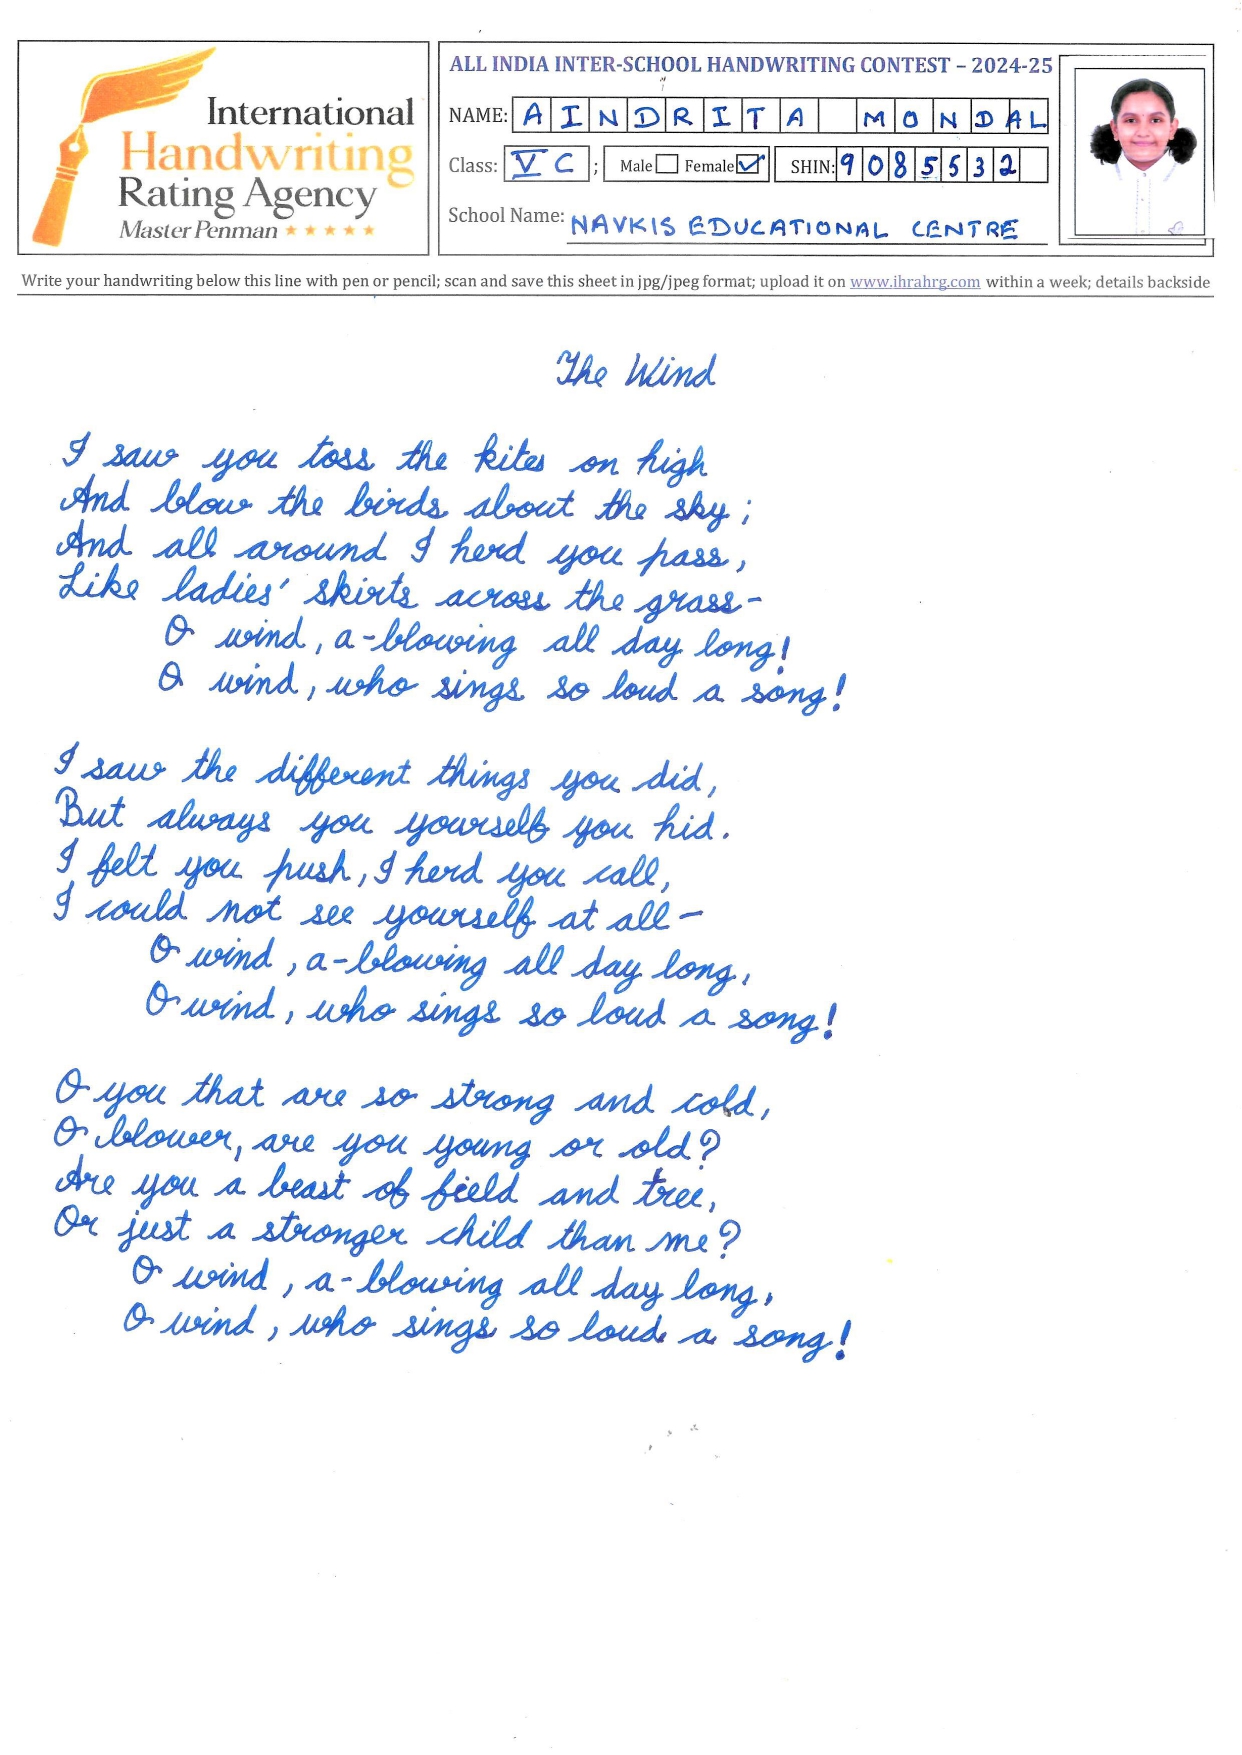 International
Handwriting
Rating Agency
Master Penman
ALL INDIA INTER-SCHOOL HANDWRITING CONTEST – 2024-25
NAME: AINDRITA MONDAL
Class: V C ; Male Female SHIN: 9085532
School Name: NAVKIS EDUCATIONAL CENTRE
Write your handwriting below this line with pen or pencil; scan and save this sheet in jpg/jpeg format; upload it on www.ihrahrg.com within a week; details backside
The Wind
I saw you toss the kites on high
And blow the birds about the sky;
And all around I herd you pass,
Like ladies' skirts across the grass-
O wind, a-blowing all day long!
O wind, who sings so loud a song!
I saw the different things you did,
But always you yourself you hid.
I felt you push, I herd you call,
I could not see yourself at all-
O wind, a-blowing all day long,
O wind, who sings so loud a song!
O you that are so strong and cold,
O blower, are you young or old?
Are you a beast of field and tree,
Or just a stronger child than me?
O wind, a-blowing all day long,
O wind, who sings so loud a song!